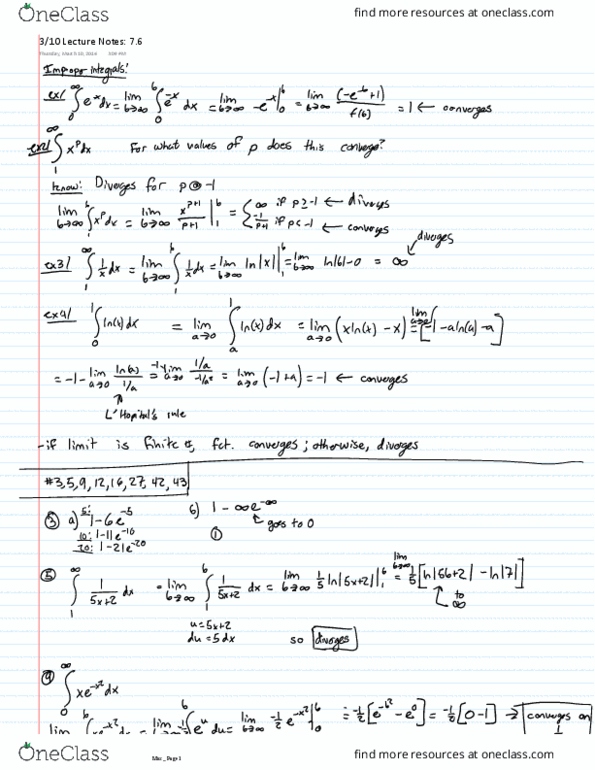 OneClass
find more resources at oneclass.com
3/10 Lecture Notes: 7.6
Improper integrals:
ex1/ ∫₀^∞ e^-x dx = lim b→∞ ∫₀^b e^-x dx = lim b→∞ -e^-x |₀^b = lim b→∞ (-e^-b+1) / f(b) = 1 ← converges
ex2/ ∫₁^∞ x^p dx For what values of p does this converge?
know: Diverges for p -1
lim b→∞ ∫₁^b x^p dx = lim b→∞ x^p+1 / p+1 |₁^b = { ∞ if p≥-1 ← diverges
-1/p+1 if p<-1 ← converges
diverges
ex3/ ∫₁^∞ 1/x dx = lim b→∞ ∫₁^b 1/x dx = lim b→∞ ln|x| |₁^b = lim b→∞ ln|b|-0 = ∞
ex4/ ∫₀^1 ln(x) dx = lim a→0 ∫ₐ^1 ln(x) dx = lim a→0 (xln(x) - x) = lim a→0 [-1-aln(a)-a]
= -1 - lim a→0 ln(a) / 1/a = -1- lim a→0 1/a / -1/a² = lim a→0 (-1+a) = -1 ← converges
L'Hopital's rule
-if limit is finite #, fct. converges; otherwise, diverges
#3,5,9,12,16,27,42,43
③ a) 5: 1-6e^-5 b) 1-∞e^-∞
10: 1-11e^-10 goes to 0
20: 1-21e^-20 ①
⑤ ∫₁^∞ 1/5x+2 dx = lim b→∞ ∫₁^b 1/5x+2 dx = lim b→∞ 1/5 ln|5x+2| |₁^b = lim b→∞ 1/5 [ln|5b+2| - ln|7|]
to ∞
u=5x+2
du=5dx so diverges
⑨ ∫₀^∞ xe^-x² dx
lim b→∞ ∫₀^b xe^-x² dx = lim b→∞ -1/2 ∫ e^u du = lim b→∞ -1/2 e^-x² |₀^b = -1/2 [e^-b² - e^0] = -1/2 [0-1] → converges on
OneClass
find more resources at oneclass.com